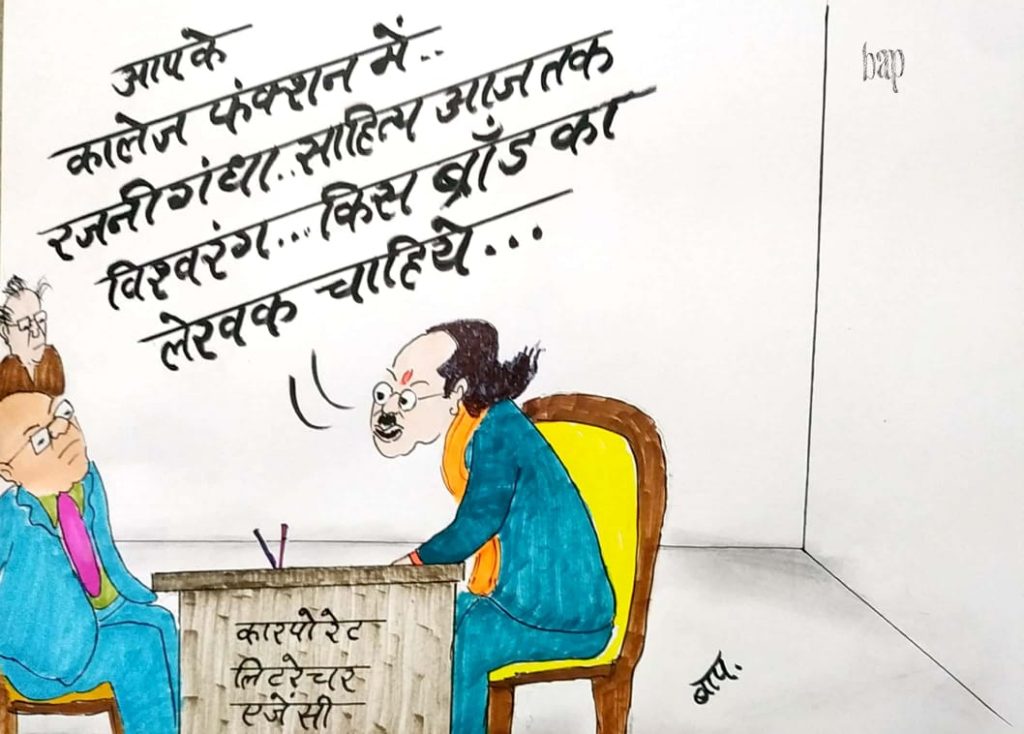 आपके
कालेज फंक्शन में..
रजनीगंधा..साहित्य आजतक
विश्वरंग...किस ब्राँड का
लेखक चाहिये...
bap
कारपोरेट
लिटरेचर
एजेंसी
बाप.